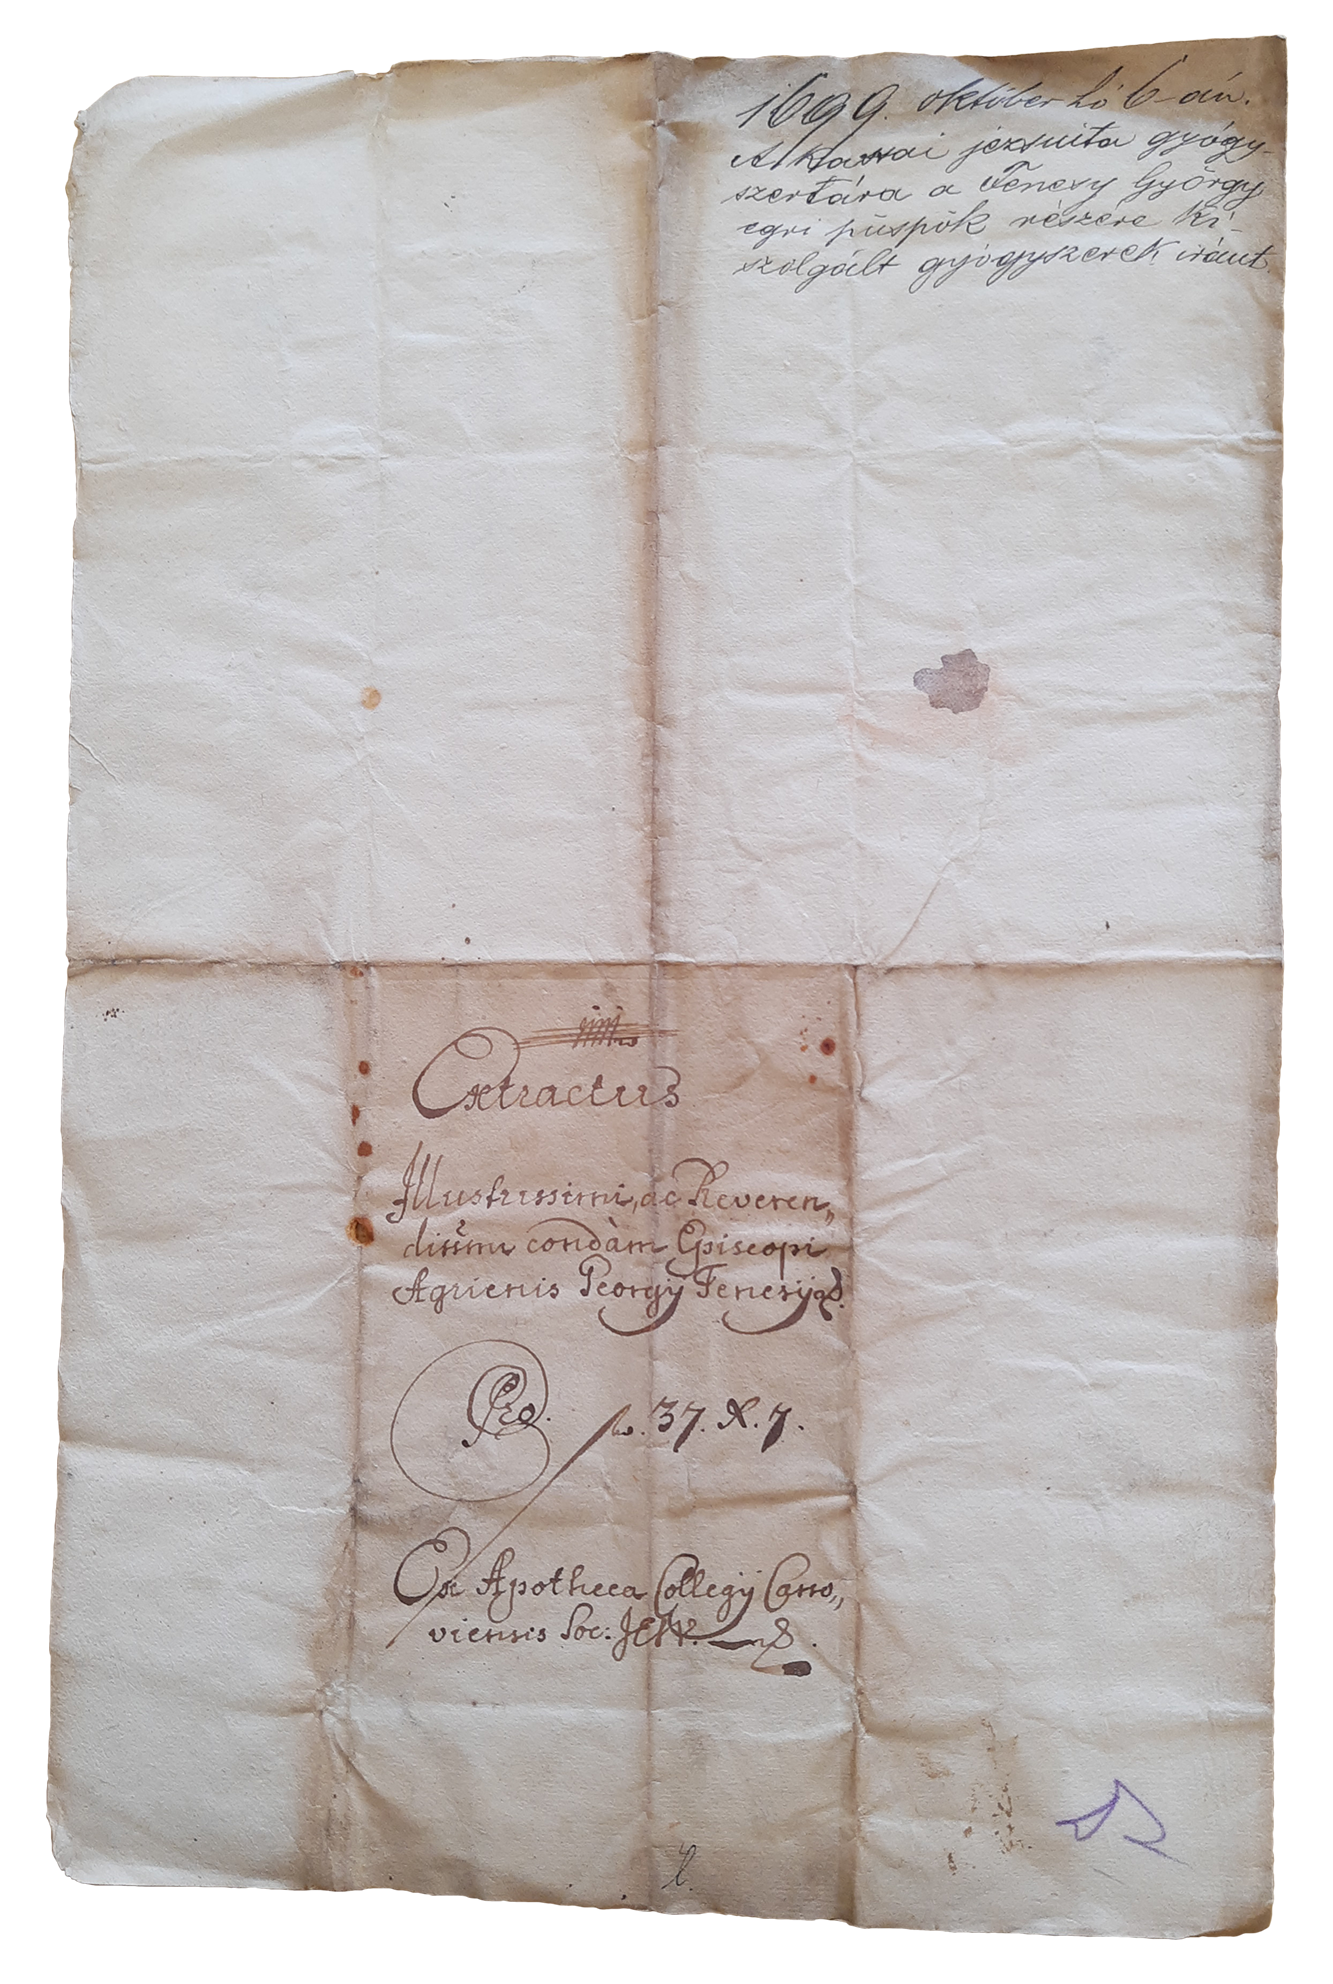 1699. október hó 6-án.
A kassai jezsuita gyógy-
szertára a Fenesy György
egri püspök részére ki-
szolgált gyógyszerek iránt.
Extractus
Illustrissimi, ac Reveren„
dissimi condàm Episcopi
Agrienis Georgÿ Fenesÿ
Pro. 37. X. 7.
Ex Apotheca Collegÿ Casso„
viensis Soc: JESV.